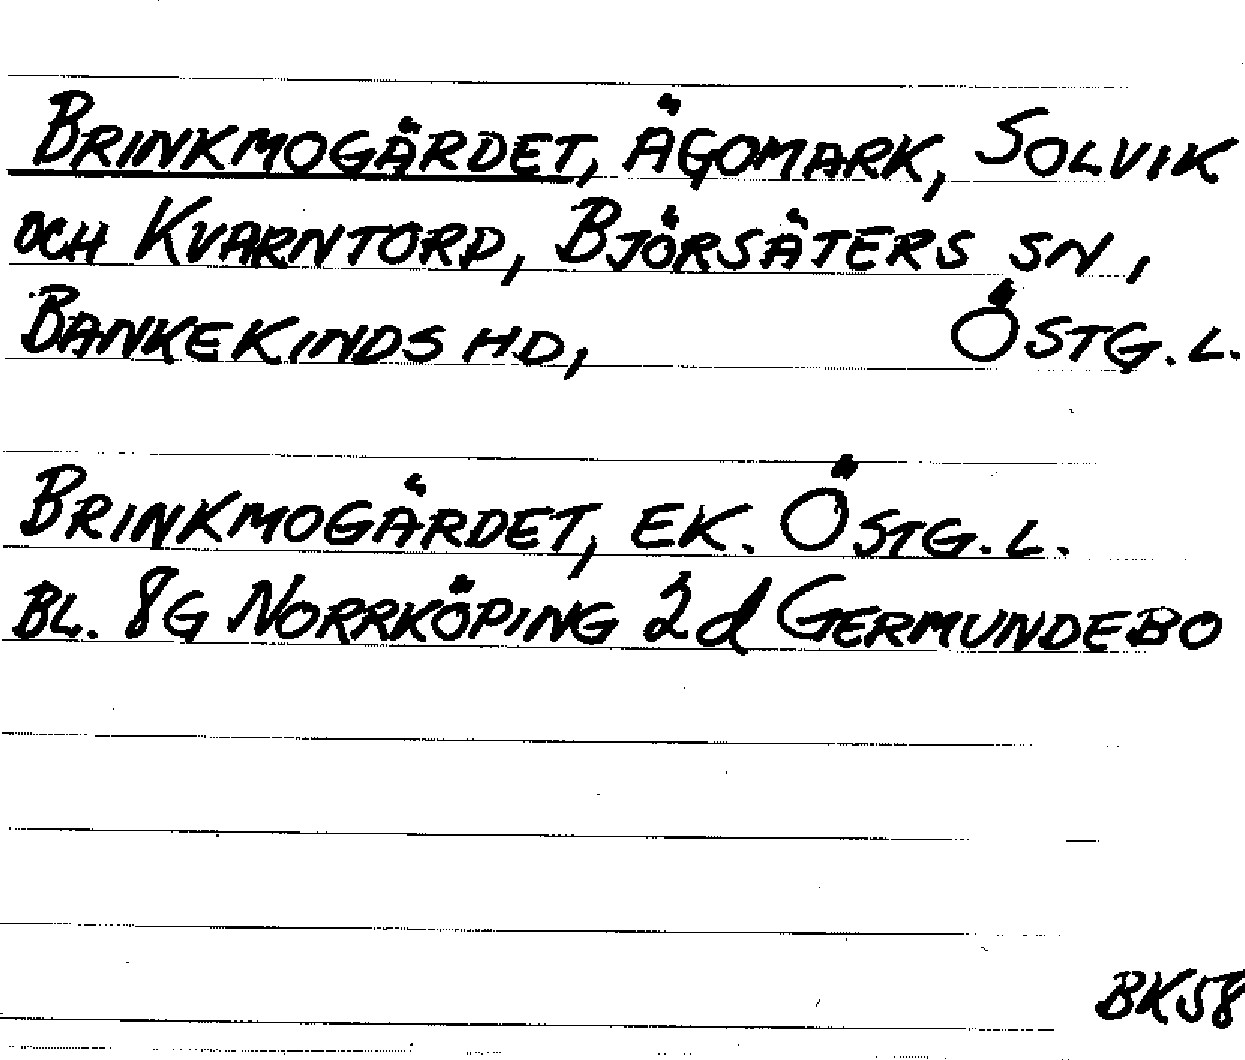 BRINKMOGÄRDET, ÄGOMARK, SOLVIK
OCH KVARNTORP, BJÖRSÄTERS SN,
BANKEKINDS HD, ÖSTG. L.
BRINKMOGÄRDET, EK. ÖSTG. L.
BL. 8G NORRKÖPING 2d GERMUNDEBO
BK58